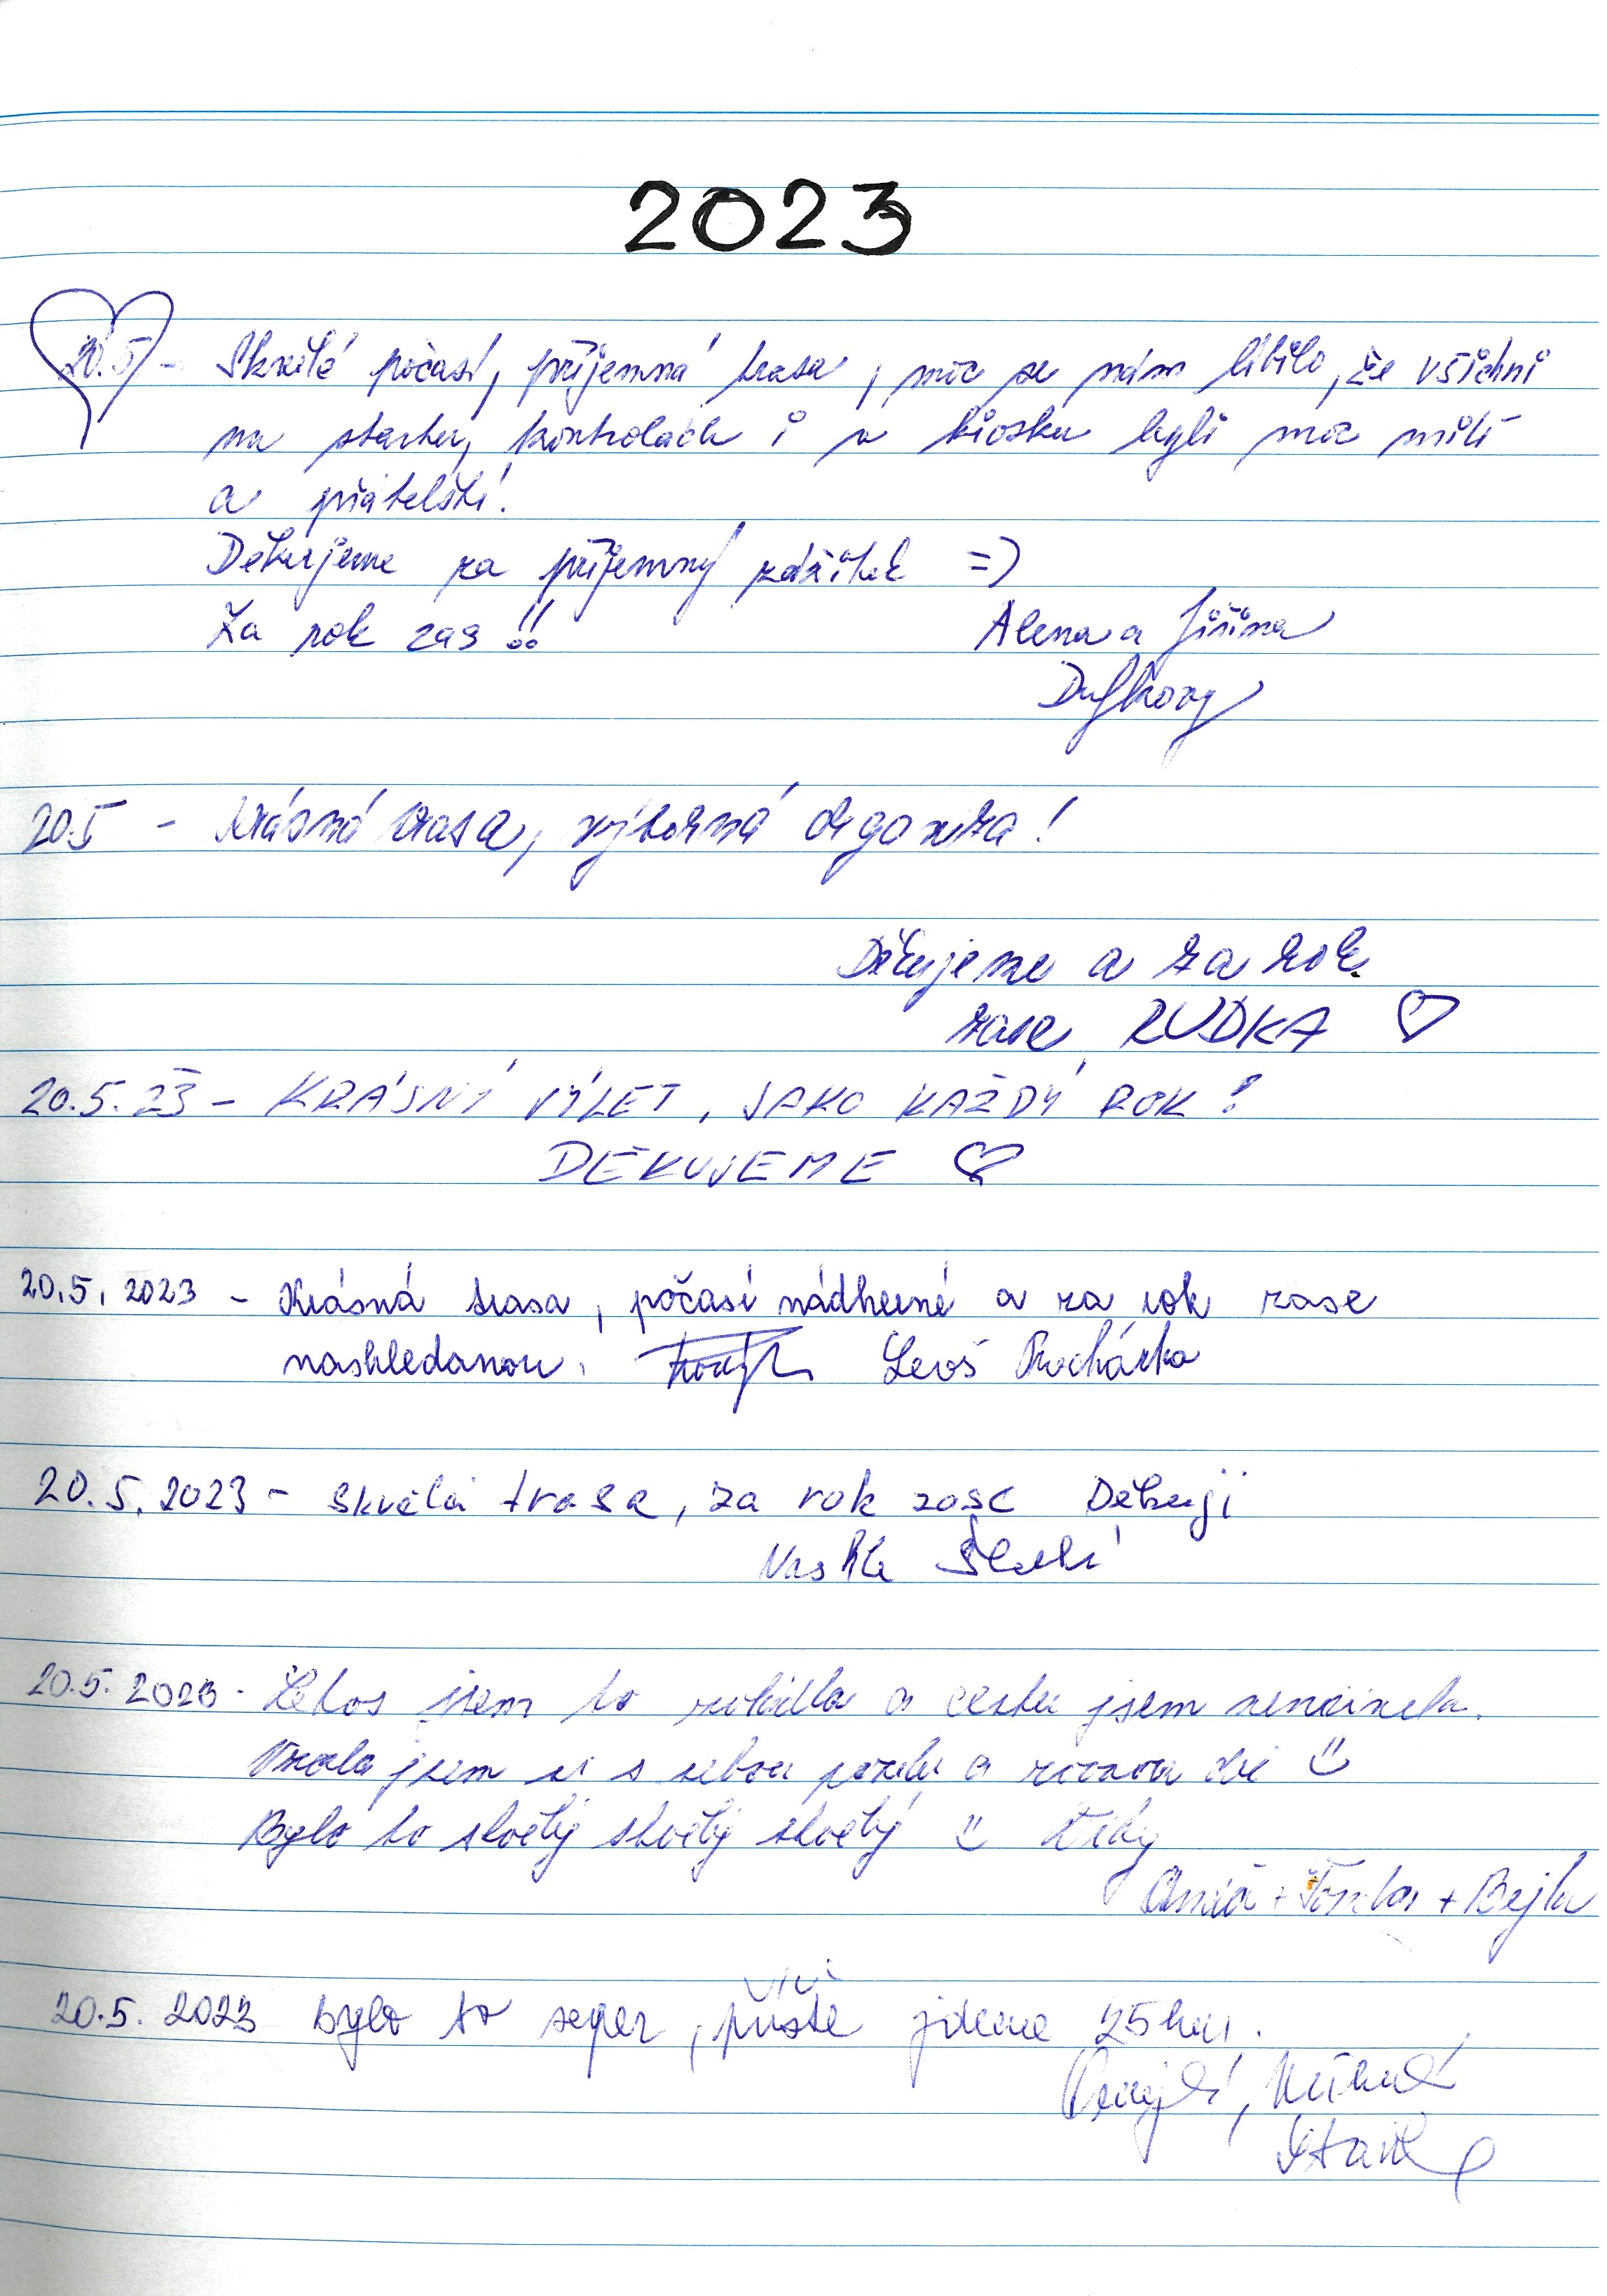 2023
20.5 - Skvělé počasí, příjemná trasa, moc se nám líbilo, že všichni
na startu, kontrolách i u kiosku byli moc milí
a přátelští!
Děkujeme za příjemný zážitek =)
Za rok zas!!
Alena a Jiřina
Dufkovy
20.5 - Krásná trasa, výborná organiza!
Děkujeme a za rok
zase RUDKA ♡
20.5.23 - KRÁSNÝ VÝLET, JAKO KAŽDÝ ROK!
DĚKUJEME ♡
20.5. 2023 - Krásná trasa, počasí nádherné a za rok zase
nashledanou. Leoš Procházka
20.5.2023 - Skvělá trasa, za rok zase Děkuji
20.5. 2023 - Letos jsem to a cestu jsem
Vzala jsem si s sebou a
Bylo to skvělý skvělý skvělý Díky
+ + Bejla
20.5. 2023 bylo to super, příště jdeme 25km.